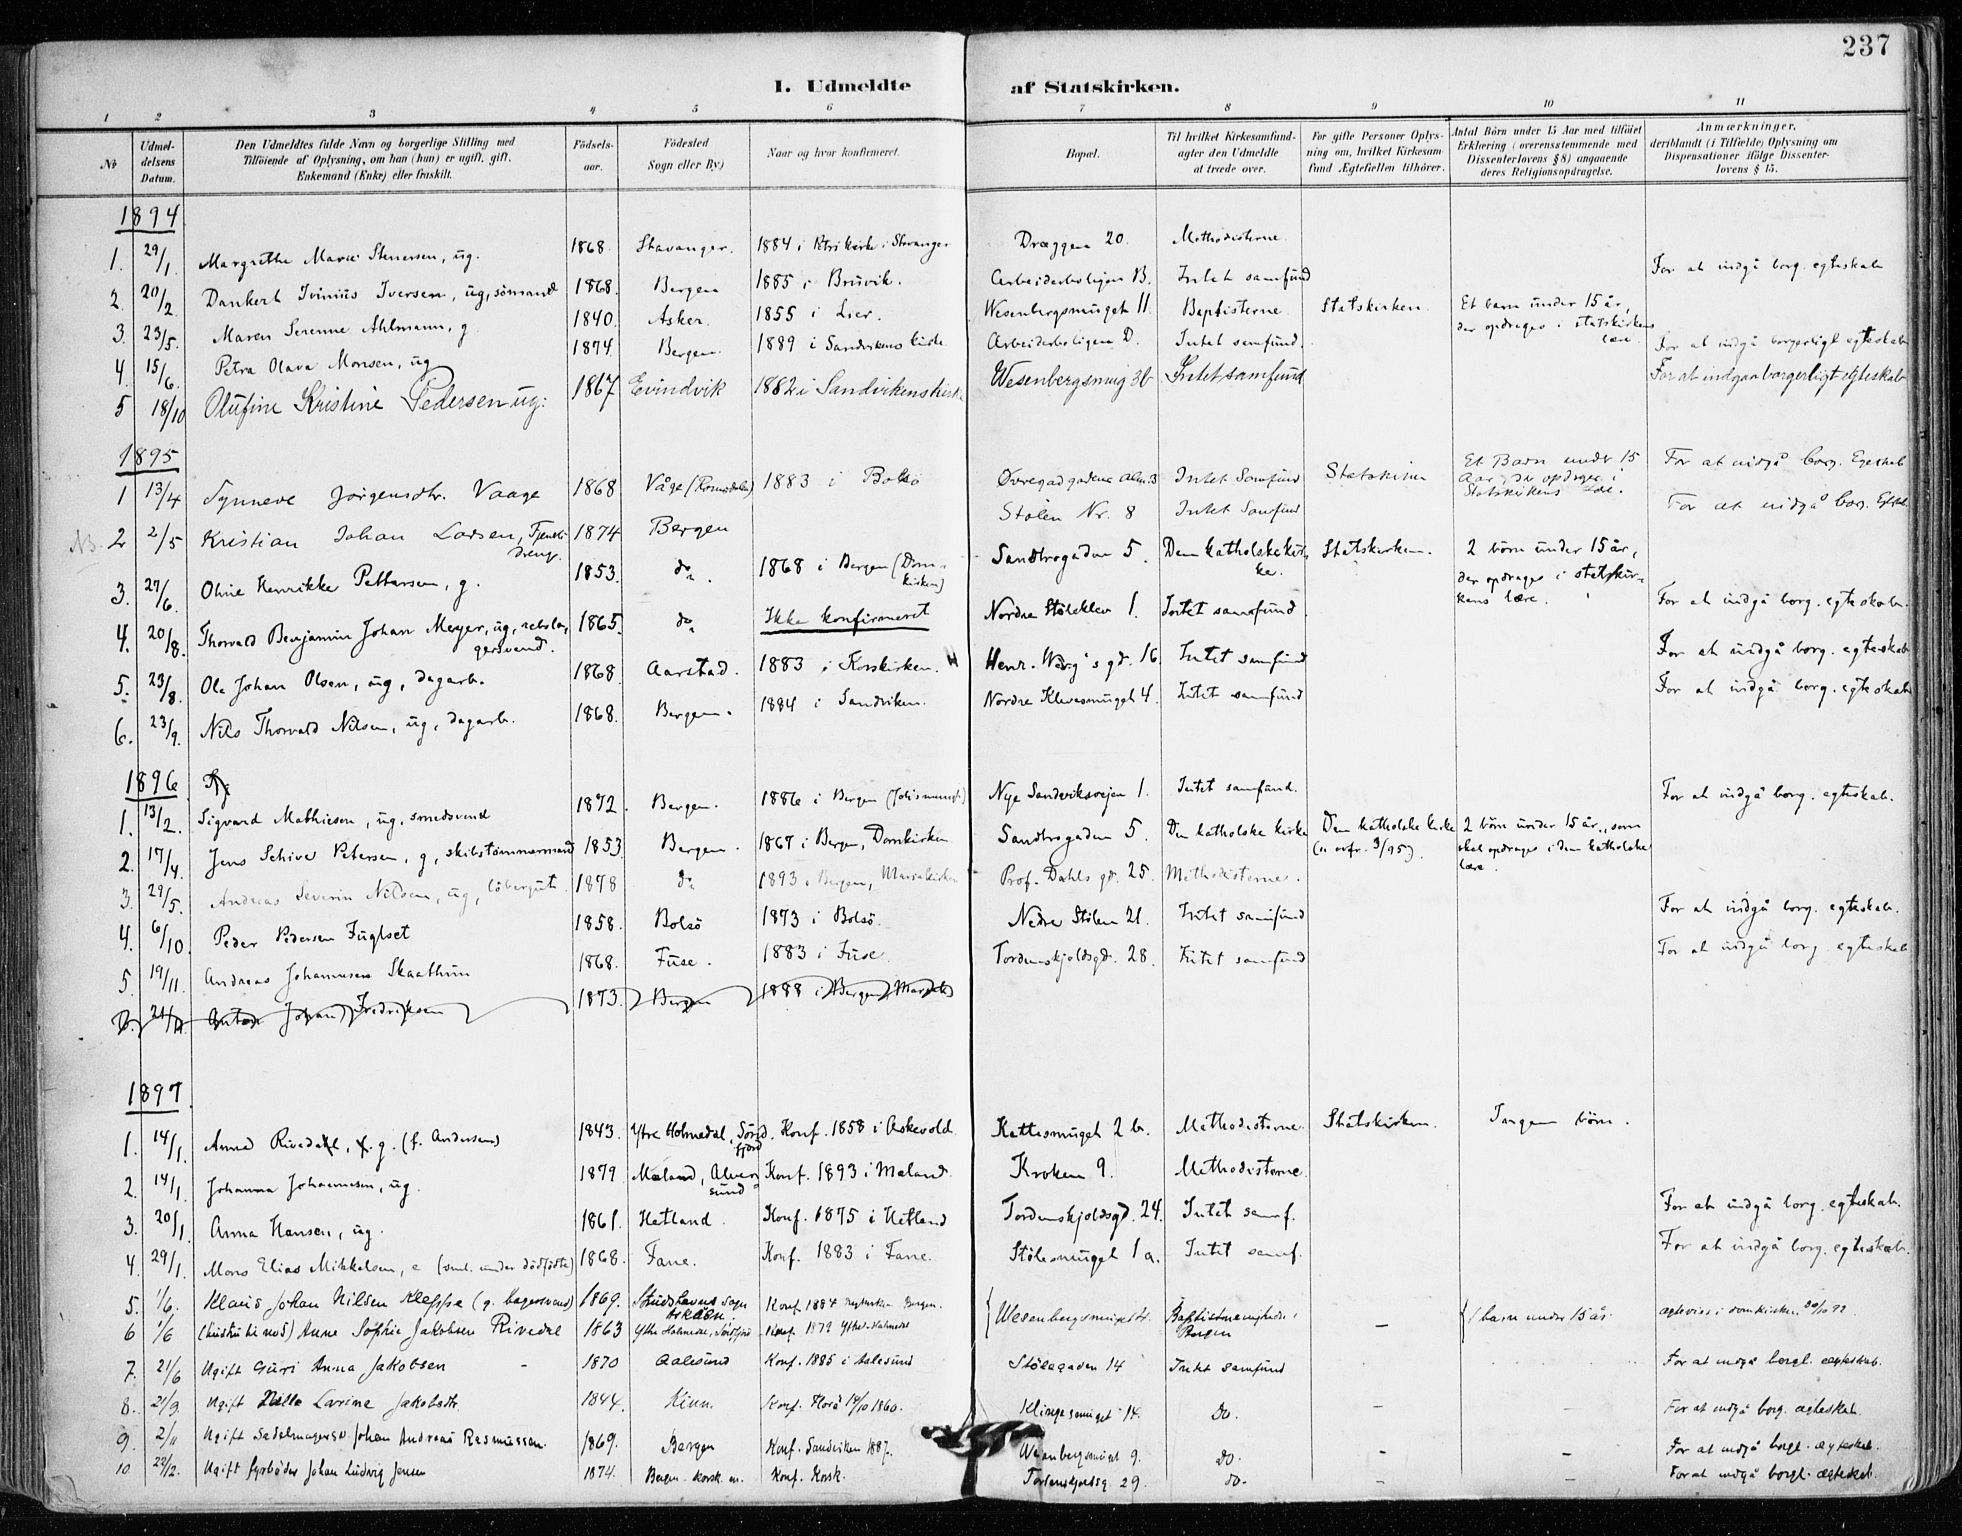 237
I. Udmeldte af Statskirken.
1 2 3 4 5 6 7 8 9 10 11
No
Udmeldelsens Datum.
Den Udmeldtes fulde Navn og borgerlige Stilling med Tilføiende af Oplysning, om han (hun) er ugift, gift, Enkemand (Enke) eller fraskilt.
Fødselsaar.
Fødested Sogn eller By)
Naar og hvor konfirmeret.
Bopæl.
Til hvilket Kirkesamfund agter den Udmeldte at træde over.
For gifte Personer Oplysning om, hvilket Kirkesamfund Ægtefællen tilhører.
Antal Børn under 15 Aar med tilføiet Erklæring (overensstemmende med Dissenterlovens § 8) angaaende deres Religionsopdragelse.
Anmærkninger, deriblandt (i Tilfælde) Oplysning om Dispensationer ifølge Dissenterlovens § 15.
1894
1. 29/1 Margrethe Marie Stenersen, ug. 1868. Stavanger. 1884 i Petrikirke i Stavanger Dræggen 20. Methodisterne.
2. 20/2 Dankert Ivinius Iversen, ug, sömand 1868. Bergen 1885 i Bruvik. Arbeiderboligen B. Intet samfund For at indgå borg. egteskab
3. 23/5. Maren Serenne Ahlmann, g. 1840. Asker. 1855 i Lier. Wesenbergsmuget 11. Baptisterne. Statskirken. Et barn under 15 år, der opdrages i statskirkens lære.
4. 15/6. Petra Olava Monsen, ug 1874. Bergen. 1889 i Sandvikens kirke Arbeiderboligen D. Intet samfund. For at indgå borgerligt egteskab
5 18/10 Olufine Kristine Pedersen ug: 1867 Evindvik 1882 i Sandvikenskirke Wesenbergsmug 3b Intet samfund For at indgaa borgerligt egteskab
1895
1 13/4 Synneve Jörgensdtr. Vaage 1868 Våge (Romsdalen) 1883 i Bolsö Øvregadgadens alm. 3 Intet Samfund Statskirken Et Barn under 15 Aar, der opdrages i Statskirkens Lære. For at indgå borg. Egteskab
NB. 2 2/5 Kristian Johan Larsen, Tjenestdreng. 1874 Bergen Stölen Nr. 8 Intet Samfund For at indgå borg. Egtsk.
3. 27/6. Oline Henrikke Pettersen, g. 1853. do. 1868 i Bergen (Domkirken) Sandbrogaden 5. Den katholske kirke. Statskirken. 2 börn under 15 år, der opdrages i statskirkens lære.
4. 20/8. Thorvald Benjamin Johan Meyer, ug, rebslagersvend. 1865. do Ikke konfirmeret Nordre Stöleklev 1. Intet samfund. For at indgå borg. egteskab.
5. 23/8. Ole Johan Olsen, ug, dagarb. 1868. Aarstad. 1883 i Korskirken. Henr. Wergs gd. 16. Intet samfund For at indgå borg. egteskab
6. 23/9. Nils Thorvald Nilsen, ug, dagarb. 1868. Bergen. 1884 i Sandviken. Nordre Klevesmuget 4. Intet samfund For at indgå borg. egteskab
1896
1. 13/2. Sigvard Mathiesen, ug, smedsvend 1872. Bergen. 1886 i Bergen Nye Sandviksveien 1. Intet samfund. For at indgå borg. egteskab.
2. 17/4. Jens Schive Petersen, g, skibstömmermand 1853 Bergen. 1867 i Bergen, Domkirken Sandbrogaden 5. Den katholske kirke Den katholske kirke 3/95). 2 börn under 15 år, som skal opdrages i den katholske lære.
3. 29/5. Andreas Severin Nilsen, ug, löbergut. 1878 do 1893 i Bergen, Mariakirken Prof. Dahls gd. 25. Methodisterne.
4. 6/10. Peder Pedersen Fuglset 1858. Bolsö 1873 i Bolsö. Nedre Stölen 21. Intet samfund For at indgå borg. egteskab.
5. 19/11. Andreas Johannesen Skaathun 1868. Fuse. 1883 i Fuse. Tordenskjoldsgd. 28. Intet samfund For at indgå borg. egteskab
21/11. Anton Johan Fredriksen 1873. Bergen 1888 i Bergen,
1897.
1. 14/1. Anna Rivedal, g. (f. Andersen) 1843. Ytre Holmedal, Söndfjord Konf. 1858 i Askevold. Kattesmuget 2 b. Methodisterne Statskirken. Ingen börn.
2. 14/1. Johanna Johannesen, ug. 1879 Mæland, Alversund Konf. 1893 i Mæland. Kroken 9. Methodisterne
3. 20/1. Anna Hansen, ug. 1861. Hetland. Konf. 1875 i Hetland Tordenskjoldsgd. 24. Intet samf. For at indgå borg. egteskab.
4. 29/1. Mons Elias Mikkelsen, e (sml. under dödfödte) 1868. Fane. Konf. 1883 i Fane. Stölesmuget 1a. Intet samf. For at indgå borg. egteskab.
5. 1/6. Klaus Johan Nilsen Kleppe (g. bagersvend) 1869. Strudshavns sogn Askøen Konf. 1884 Nykirken Bergen. Wesenbergsmuget 4. Baptistmenigheden i Bergen – 1 barn under 15 år ægteviet i domkirken 30/10 92
6 1/6 (hustru til no 5) Anne Sophie Jakobsen Rivedal 1863 Ytre Holmedal, Söndfjord Konf. 1879 Ytre Holmedal
7. 21/6 Ugift Guri Anna Jakobsen – 1870 Aalesund Konf. 1885 i Aalesund Stölegaden 14 Intet samfund For at indgå borgl. ægteskab.
8. 21/9. Ugift Lovine Jakobsdtr. 1844. Kinn. Konf. Florö 14/10 1860. Klingesmuget 14. Do. – – For at indgå borg. ægteskab.
9. 2/11 Ugift Sadelmagersv. Johan Andreas Rasmussen. 1869. Bergen Konf. Sandviken 1887. Wesenbergsmuget 9. Do. – – For at indgå borgl. ægteskab.
10 22/12. Ugift fyrböder Johan Ludvig Jensen 1874. Bergen. Korsk. m. Konf. Korsk. Tordenskjoldsg. 29 do. – – For at indgå borgl. ægteskab.